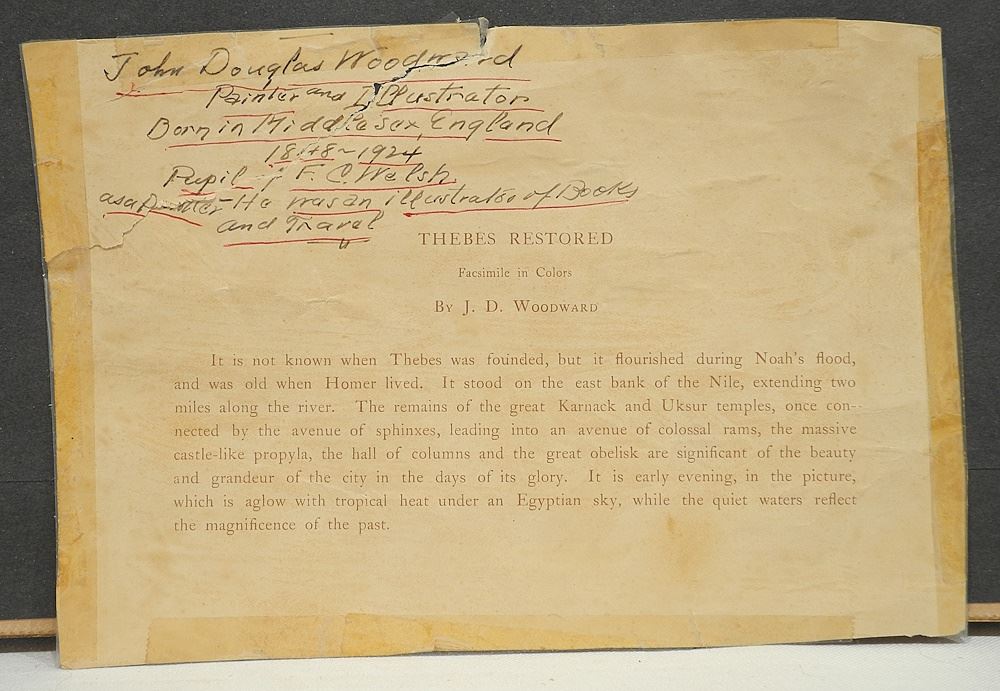 John Douglas Woodward
Painter and Illustrator
Born in Middlesex, England
1848 - 1924
Pupil of F. C. Welsh.
as a Painter He was an illustrator of Books
and Travel
THEBES RESTORED
Facsimile in Colors
BY J. D. WOODWARD
It is not known when Thebes was founded, but it flourished during Noah's flood,
and was old when Homer lived. It stood on the east bank of the Nile, extending two
miles along the river. The remains of the great Karnack and Uksur temples, once con-
nected by the avenue of sphinxes, leading into an avenue of colossal rams, the massive
castle-like propyla, the hall of columns and the great obelisk are significant of the beauty
and grandeur of the city in the days of its glory. It is early evening, in the picture,
which is aglow with tropical heat under an Egyptian sky, while the quiet waters reflect
the magnificence of the past.